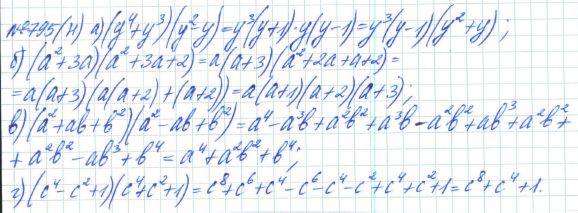 №795(н) а) (y⁴+y³)(y²-y)=y³(y+1)·y(y-1)=y³(y-1)(y²+y);
б) (a²+3a)(a²+3a+2)=a(a+3)(a²+2a+a+2)=
=a(a+3)(a(a+2)+(a+2))=a(a+1)(a+2)(a+3);
в) (a²+ab+b²)(a²-ab+b²)=a⁴-a³b+a²b²+a³b-a²b²+ab³+a²b²+
+a²b²-ab³+b⁴=a⁴+a²b²+b⁴;
г) (c⁴-c²+1)(c⁴+c²+1)=c⁸+c⁶+c⁴-c⁶-c⁴-c²+c⁴+c²+1=c⁸+c⁴+1.